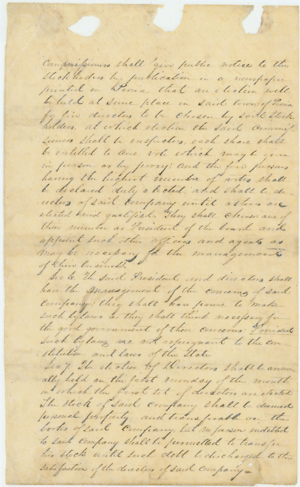 Commissioners shall give public notice to the
Stockholders by publication in a newspaper
printed in Peoria that an election will
be held at some place in said town of Peoria
by five directors to be chosen by said Stock
holders, at which election the said Commis
sioners shall be inspectors, each share shall
be entitled to one vote which may be given
in person or by proxy and the five persons
having the highest number of votes shall
be declared duly elected and shall be di
rectors of said Company until others are
elected and qualified. They shall choose one of
their number as President of the board and
appoint such other officers and agents as
may be necessary for the management
of their business
Sec 6 The said President and directors shall
have the management of the concerns of said
Company they shall have power to make
such bylaws as they shall think necessary for
the good government of their concerns Provided
such bylaws are not repugnant to the con
stitution and laws of the State
Sec 7 The election of Directors shall be annu
ally held on the first monday of the month
in which the first set of directors are elected
The Stock of said Company shall be deemed
personal property and transferable on the
books of said Company but no person indebted
to said Company shall be permitted to transfer
his stock until such debt be discharged to the
satisfaction of the directors of said Company